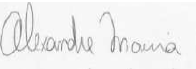 Alexandre Mania